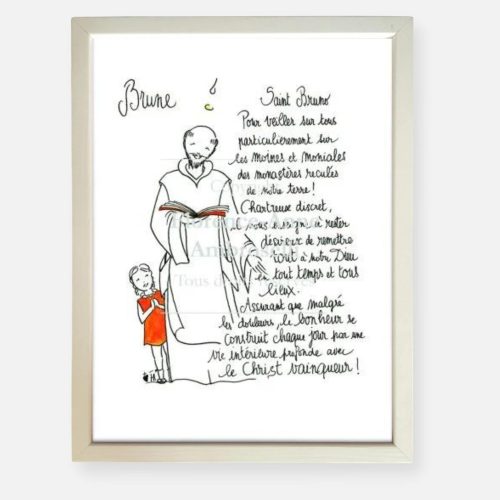 Brune
Saint Bruno
Pour veiller sur tous
particulièrement sur
les moines et moniales
des monastères reculés
de notre terre !
Chartreuse discret,
il nous enseigne à rester
désireux de remettre
tout à notre Dieu
en tout temps et tous
lieux.
Assurant que malgré
les douleurs, le bonheur se
construit chaque jour par une
vie intérieure profonde avec
le Christ vainqueur !
Tous